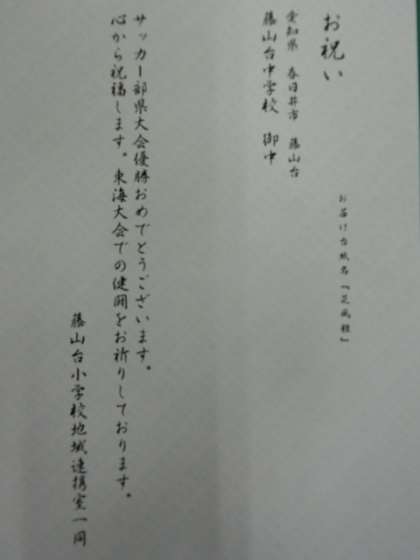 お祝い
お届け台紙名「芝風雅」
愛知県 春日井市 藤山台
藤山台中学校 御中
サッカー部県大会優勝おめでとうございます。
心から祝福します。東海大会での健闘をお祈りしております。
藤山台小学校地域連携室一同